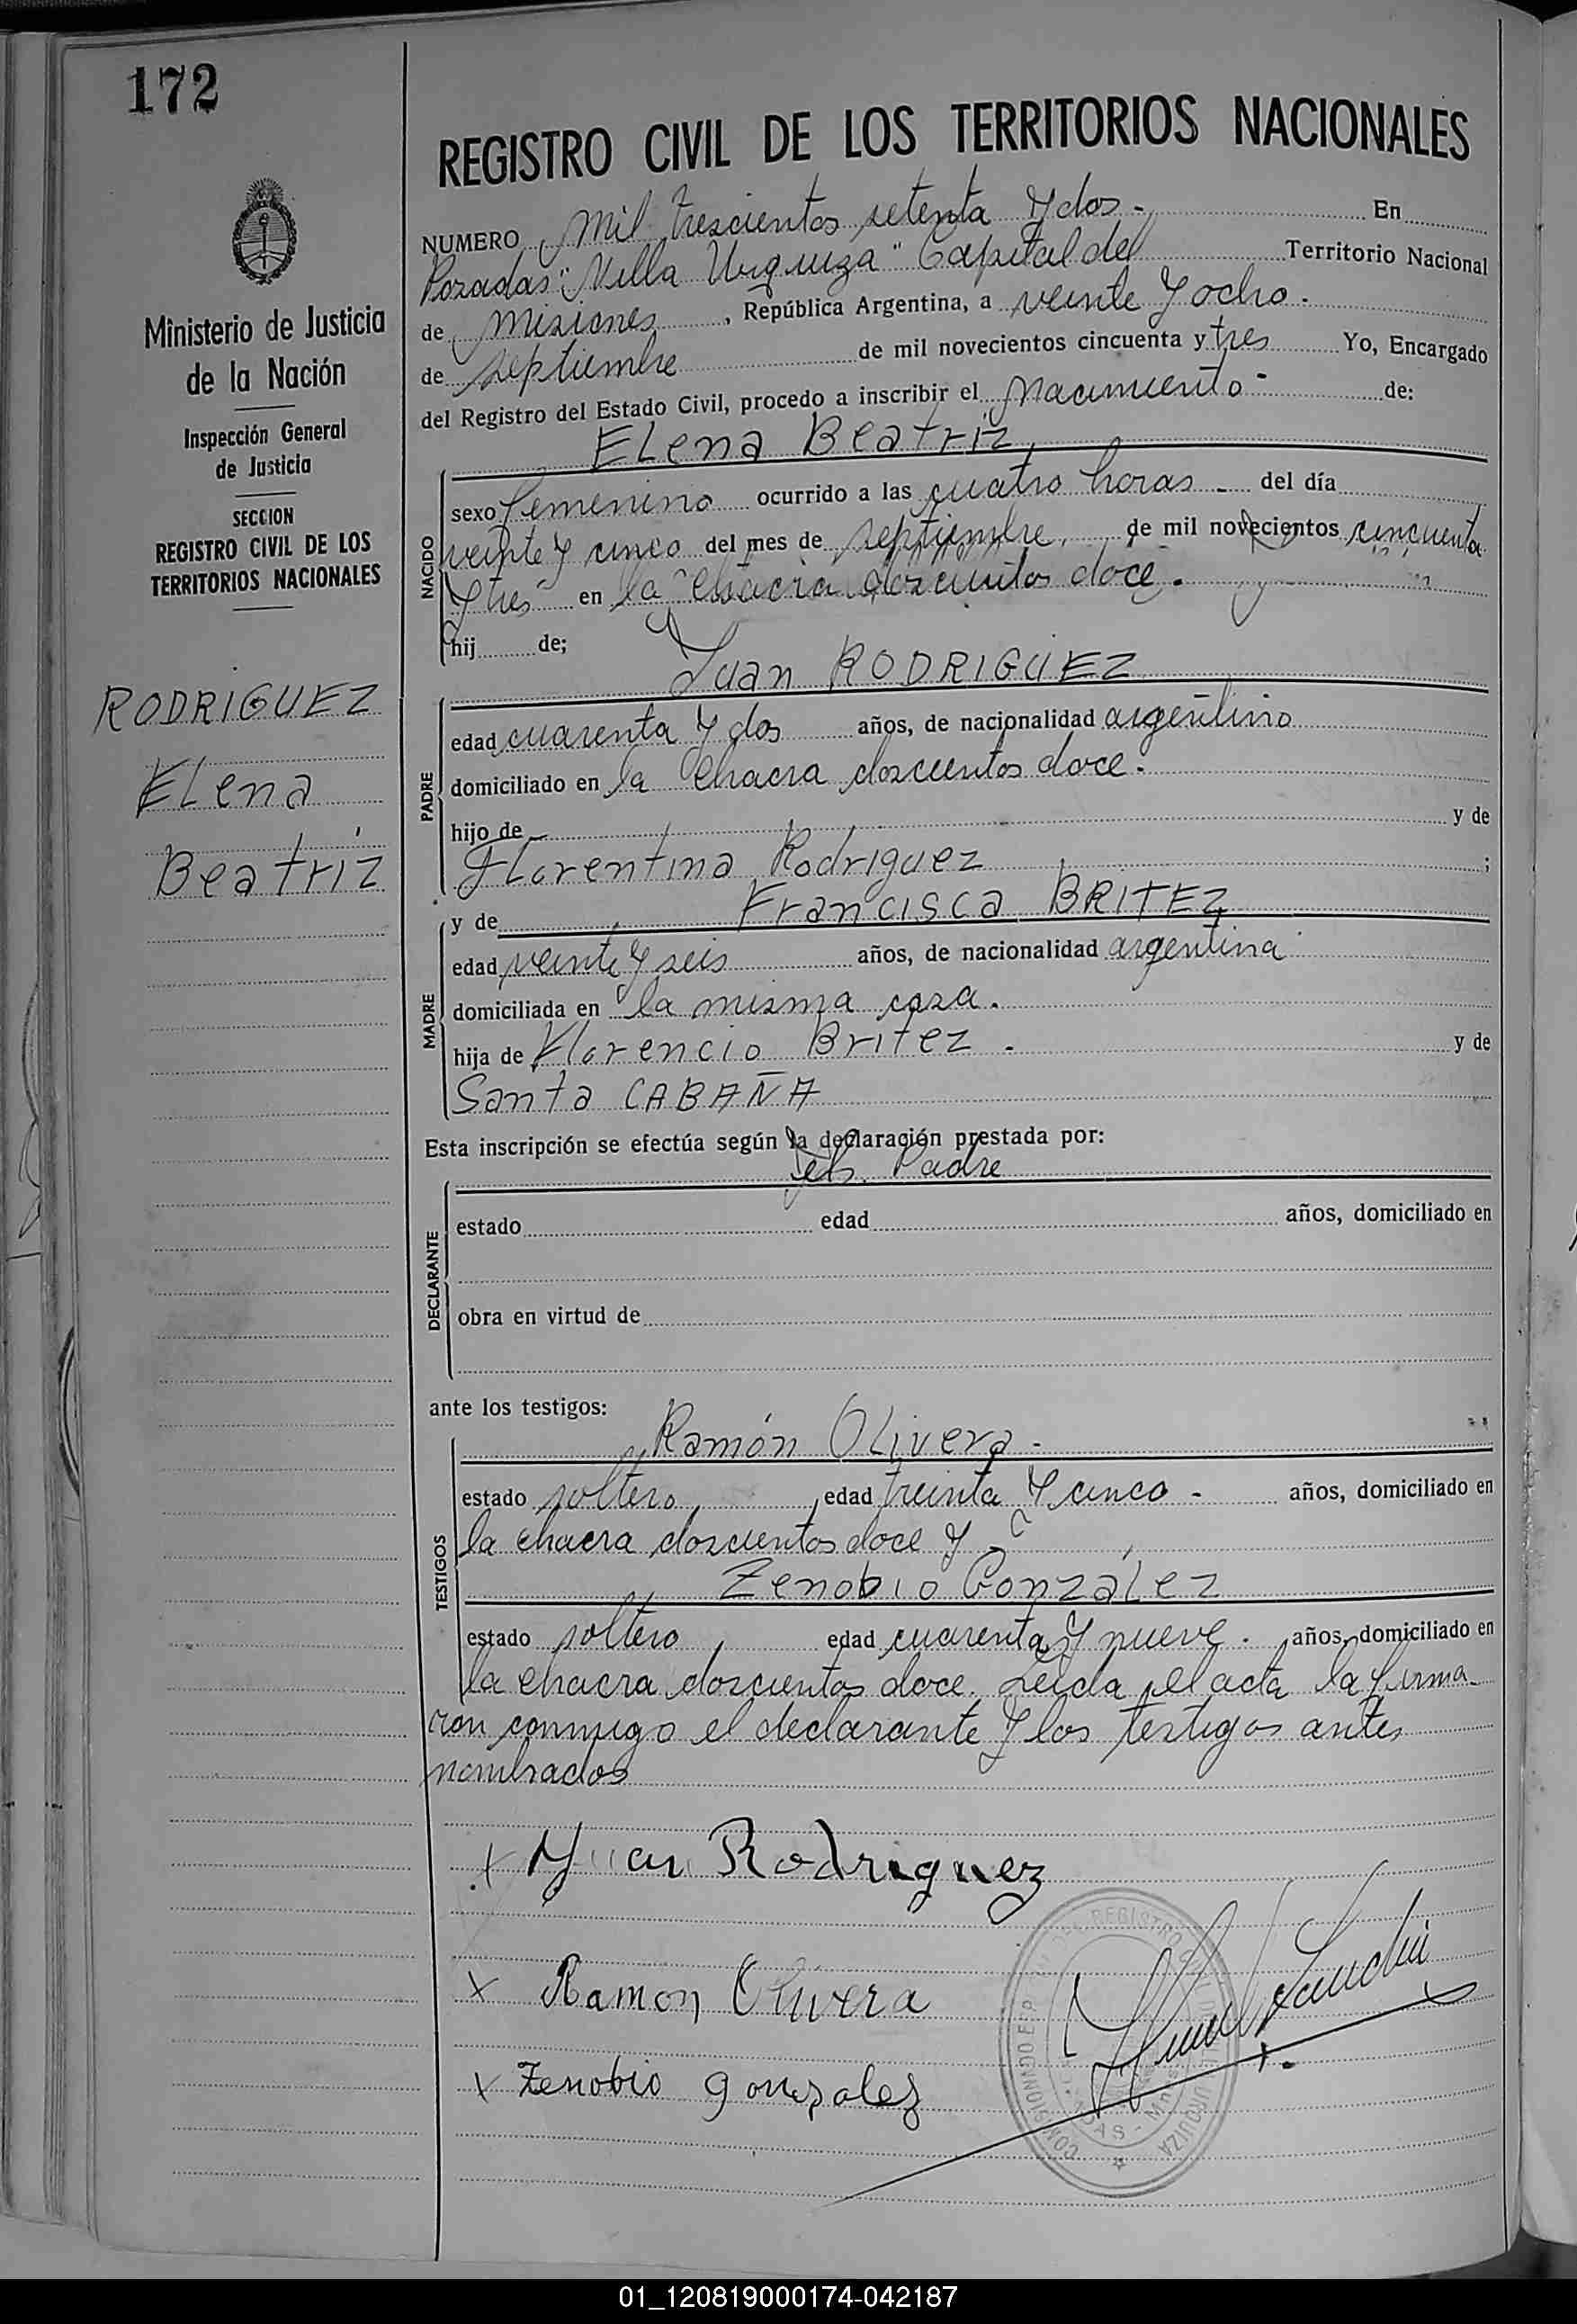 172
REGISTRO CIVIL DE LOS TERRITORIOS NACIONALES
NUMERO mil trescientos setenta y dos - En
Posadas "Villa Urquiza" Capital del Territorio Nacional
de Misiones, República Argentina, a veinte y ocho.
de septiembre de mil novecientos cincuenta y tres Yo, Encargado
del Registro del Estado Civil, procedo a inscribir el nacimiento - de:
Elena Beatriz
NACIDO
sexo femenino ocurrido a las cuatro horas - del día
veinte y cinco del mes de septiembre, de mil novecientos cincuenta
y tres en la chacra doscientos doce.
hij de;
Juan RODRIGUEZ
PADRE
edad cuarenta y dos años, de nacionalidad argentino
domiciliado en la chacra doscientos doce.
hijo de - y de
Florentina Rodriguez ;
y de Francisca BRITEZ
MADRE
edad veinte y seis años, de nacionalidad argentina
domiciliada en la misma casa.
hija de Florencio Britez - y de
Santa CABAÑA
Esta inscripción se efectúa según la declaración prestada por:
el Padre
DECLARANTE
estado edad años, domiciliado en
obra en virtud de
ante los testigos:
Ramón Olivera -
TESTIGOS
estado soltero, edad treinta y cinco - años, domiciliado en
la chacra doscientos doce y -
Zenobio González
estado soltero, edad cuarenta y nueve. años, domiciliado en
la chacra doscientos doce. Leida el acta la firma-
ron conmigo el declarante y los testigos antes
nombrados
x Juan Rodriguez
x Ramon Olivera
x Zenobio gonzalez
REGISTRO CIVIL
URQUIZA
Ministerio de Justicia
de la Nación
Inspección General
de Justicia
SECCION
REGISTRO CIVIL DE LOS
TERRITORIOS NACIONALES
RODRIGUEZ
Elena
Beatriz
01_120819000174-042187